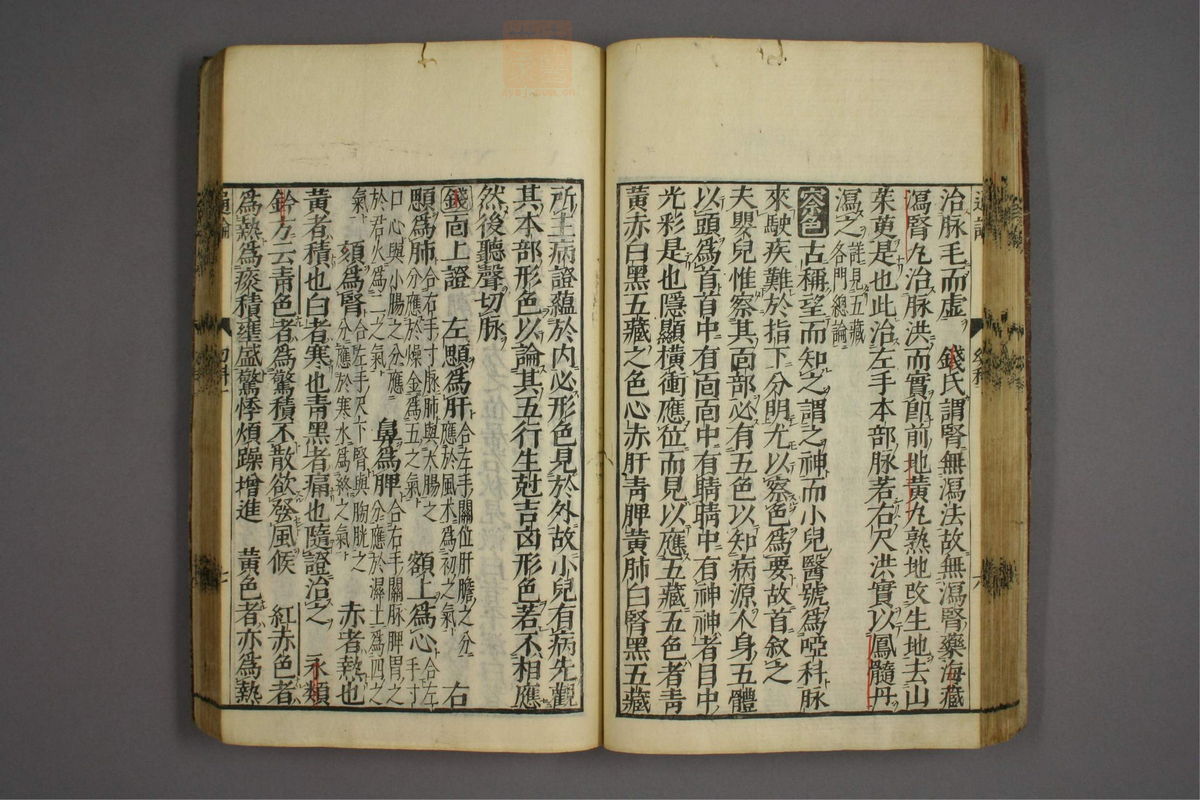 治脉毛而虚　錢氏謂腎無瀉法故無瀉腎藥海藏
瀉腎丸治脉洪而實即前地黄丸熟地改生地去山
茱萸是也此治左手本部脉若右尺洪實以鳳髓丹
瀉之詳見五藏各門總論
察色古稱望而知之謂之神而小兒醫號爲啞科脉
來駛疾難於指下分明尤以察色爲要故首叙之
夫嬰兒惟察其面部必有五色以知病源人身五體
以頭爲首首中有面面中有睛睛中有神神者目中
光彩是也隱顯横衝應位而見以應五藏五色者青
黄赤白黑五藏之色心赤肝青脾黄肺白腎黑五藏
所主病證蘊於内必形色見於外故小兒有病先觀
其本部形色以論其五行生尅吉凶形色若不相應
然後聽聲切脉
錢面上證　左顋爲肝合左手關位肝膽之分應於風木爲初之氣　右
顋爲肺合右手寸脉肺與大腸之分應於燥金爲五之氣　額上爲心合左手寸
口心與小腸之分應於君火爲二之氣　鼻爲脾合右手關脉脾胃之分應於濕土爲四之
氣　頦爲腎合左手尺下腎與膀胱之分應於寒水爲終之氣　赤者熱也
黄者積也白者寒也青黑者痛也隨證治之　永類
鈐方云青色者爲驚積不散欲發風候　紅赤色者
爲熱爲痰積壅盛驚悸煩躁增進　黄色者亦爲熱